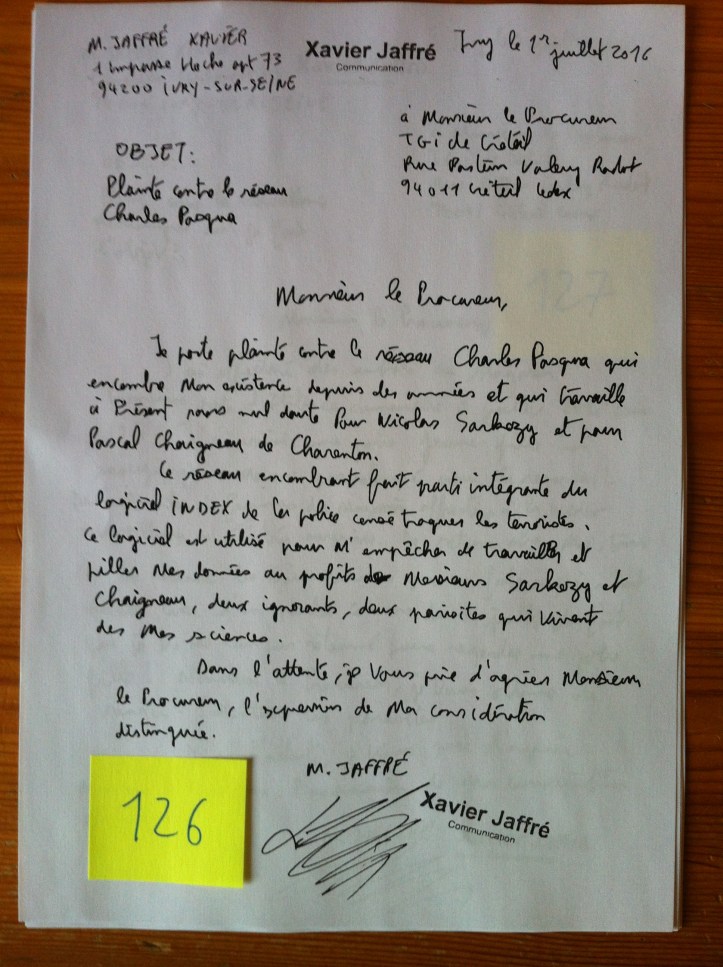 M. JAFFRÉ XAVIER
1 Impasse Hoche apt 73
94200 IVRY-SUR-SEINE
Xavier Jaffré
Communication
Ivry le 1er juillet 2016
à Monsieur le Procureur
TGI de Créteil
Rue Pasteur Valery Radot
94011 Créteil Cedex
OBJET:
Plainte contre le réseau
Charles Pasqua
127
Monsieur le Procureur,
Je porte plainte contre le réseau Charles Pasqua qui
encombre mon existence depuis des années et qui travaille
à Présent sans nul doute Pour Nicolas Sarkozy et pour
Pascal Chaigneau de Charenton.
Ce réseau encombrant fait parti intégrante du
logiciel INDEX de la police censé traquer les terroristes.
Ce logiciel est utilisé pour m'empêcher de travailler et
piller mes données au profits de Messieurs Sarkozy et
Chaigneau, deux ignorants, deux parasites qui vivent
des mes sciences.
Dans l'attente, je vous prie d'agréer Monsieur
le Procureur, l'expression de ma considération
distinguée.
M. JAFFRÉ
Xavier Jaffré
Communication
126